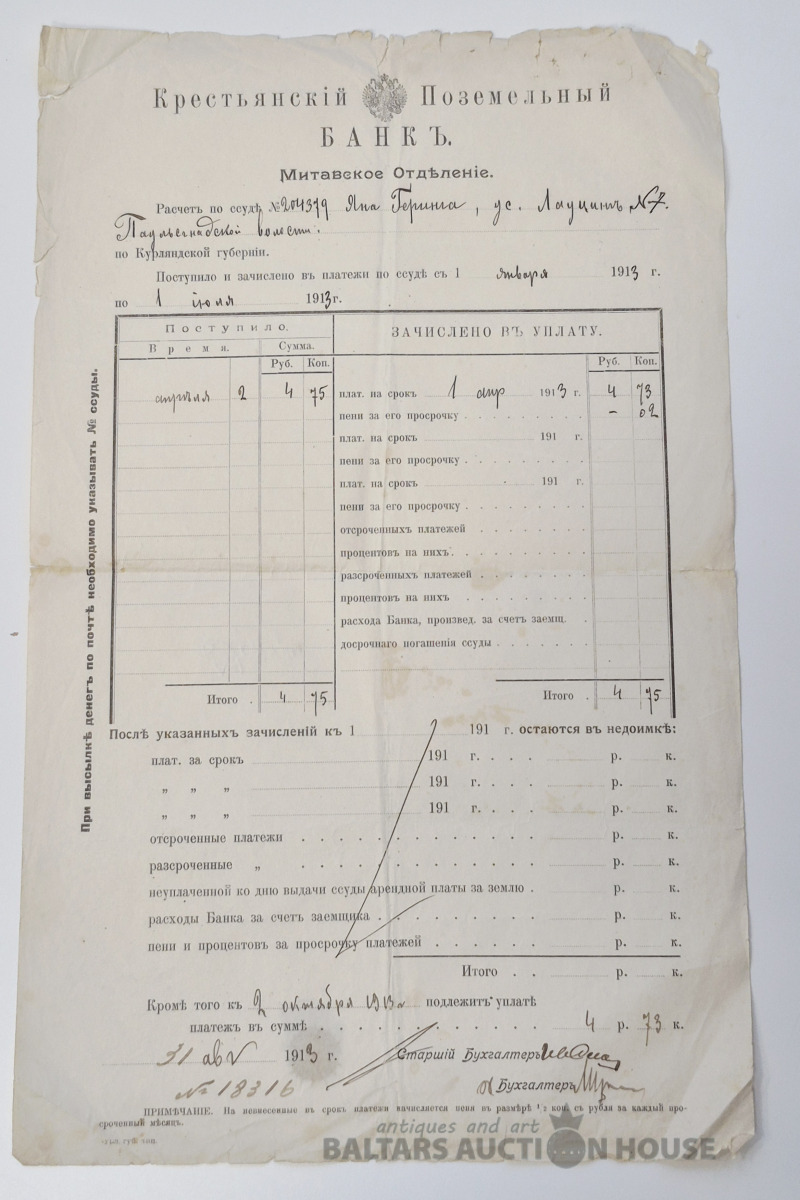 Крестьянскій Поземельный
БАНКЪ.
Митавское Отдѣленіе.
Расчетъ по ссудѣ № 204379 Яна Геринга, ус. Лауцинъ №7.
волости.
по Курляндской губерніи.
Поступило и зачислено въ платежи по ссудѣ съ 1 января 1913 г.
по 1 іюля 1913 г.
Поступило. ЗАЧИСЛЕНО ВЪ УПЛАТУ.
Время. Сумма.
Руб. Коп. Руб. Коп.
апрѣля 2 4 75 плат. на срокъ 1 апр 1913 г. 4 73
пени за его просрочку - 02
плат. на срокъ 191 г.
пени за его просрочку
плат. на срокъ 191 г.
пени за его просрочку
отсроченныхъ платежей
процентовъ на нихъ
разсроченныхъ платежей
процентовъ на нихъ
расхода Банка, произвед. за счетъ заемщ.
досрочнаго погашенія ссуды
Итого . 4 75 Итого . 4 75
При высылкѣ денегъ по почтѣ необходимо указывать № ссуды.
Послѣ указанныхъ зачисленій къ 1 191 г. остаются въ недоимкѣ:
плат. за срокъ 191 г. . . . р. к.
„ „ „ 191 г. . . . р. к.
„ „ „ 191 г. . . . р. к.
отсроченные платежи р. к.
разсроченные „ р. к.
неуплаченной ко дню выдачи ссуды арендной платы за землю . р. к.
расходы Банка за счетъ заемщика р. к.
пени и процентовъ за просрочку платежей р. к.
Итого . . р. к.
Кромѣ того къ 2 октября 1913 г. подлежитъ уплатѣ
платежъ въ суммѣ 4 р. 73 к.
31 авг 1913 г. Старшій Бухгалтеръ
№ 18316 Бухгалтеръ
ПРИМѢЧАНІЕ. На невнесенные въ срокъ платежи начисляется пеня въ размѣрѣ 1/2 коп. съ рубля за каждый про-
сроченный мѣсяцъ.
antiques and art
BALTARS AUCTION HOUSE